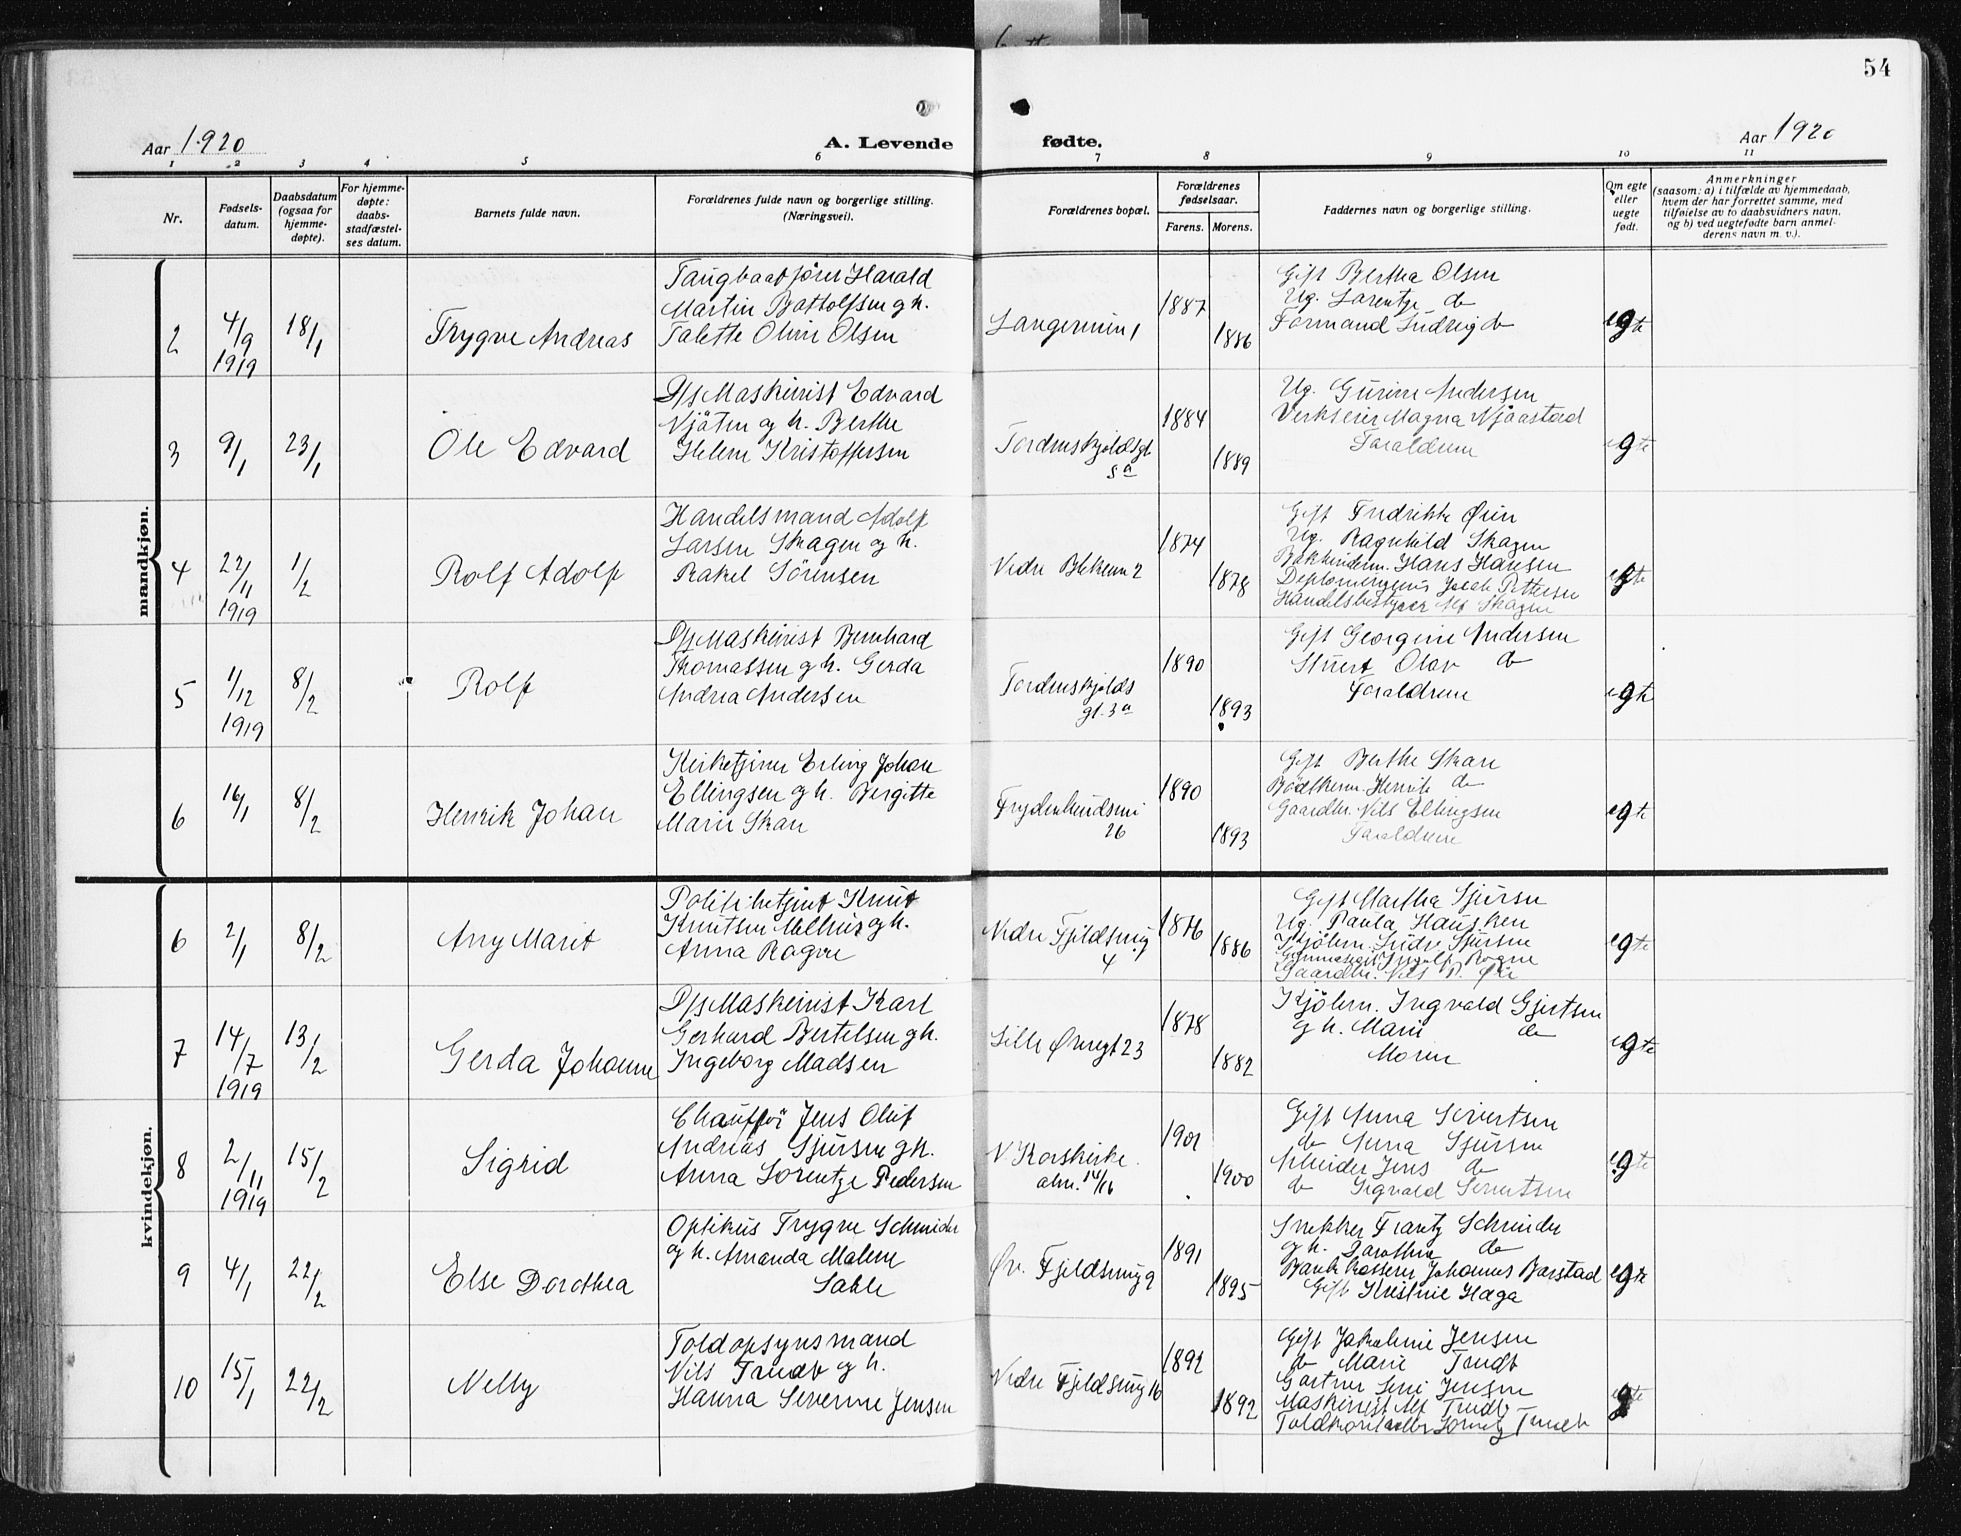 54
Aar 1920
A. Levende fødte.
Aar 1920
1 2 3 4 5 6 7 8 9 10 11
Nr.
Fødsels-
datum.
Daabsdatum
(ogsaa for
hjemme-
døpte).
For hjemme-
døpte:
daabs-
stadfæstel-
ses datum.
Barnets fulde navn.
Forældrenes fulde navn og borgerlige stilling.
(Næringsvei).
Forældrenes bopæl.
Forældrenes
fødselsaar.
Farens. Morens.
Faddernes navn og borgerlige stilling.
Om egte
eller
uegte
født.
Anmerkninger
(saasom: a) i tilfælde av hjemmedaab,
hvem der har forrettet samme, med
tilføielse av to daabsvidners navn,
og b) ved uegtefødte barn anmel-
derens navn m. v.).
mandkjøn.
2
4/9
1919
18/1
Trygve Andreas
Taugbaatfører Harald
Martin Bottolfsen g h.
Talette Oline Olsen
1887
1886
Gift Bertha Olsen
Ug. Lorentze do
Formand Ludvig do
egte
3
9/1
23/1
Ole Edvard
D/s Maskinist Edvard
Njåten og h. Berthe
Helene Kristoffersen
Tordenskjoldsgt
5a
1884
1889
Ug. Gurine Andersen
Verkseier Magna Njaastad
Foraldrene
egte
4
22/11
1919
1/2
Rolf Adolf
Handelsmand Adolf
Larsen Skagen og h.
Rakel Sörensen
Nedre Blekevn 2
1874
1878
Gift Fredrikke Ørin
Ug. Ragnhild Skagen
Bokbinderm. Hans Hansen
Jacob Pettersen
Handelsbestyrer Alf Skagen
egte
5
1/12
1919
8/2
Rolf
D/s Maskinist Bernhard
Thomassen g h. Gerda
Andrea Andersen
Tordenskjolds
gt. 3a
1890
1893
Gift Georgine Andersen
Stuert Olav do
Foraldrene
egte
6
16/1
8/2
Henrik Johan
Kirketjener Erling Johan
Ellingsen g h. Birgitte
Marie Skare
26
1890
1893
Gift Berthe Skare
Bødkerm. Henrik do
Gaardbr. Nils Ellingsen
Foraldrene
egte
kvindekjøn.
6
2/1
8/2
Any Marit
Politibetjent Knut
Knutsen Melhus g h.
Anna Rogne
Nedre Fjeldsmug
4
1876
1886
Gift Martha Sjursen
Ug. Paula Hausken
Kjølem. Sjursen
Ingolf Rogne
Gaardbr. Nils P.
egte
7
14/7
1919
13/2
Gerda Johanne
D/s Maskinist Karl
Gerhard Bertelsen g h.
Ingeborg Madsen
Lille Øvregt 23
1878
1882
Kjölem. Ingvald Gjertsen
g h. Marie do
Moren
egte
8
2/11
1919
15/2
Sigrid
Chaufför Jens Oluf
Andreas Sjursen g h.
Anna Lorentze Pedersen
N Korskirke
alm. 14/16
1901
1900
Gift Anna Sivertsen
do Anna Sjursen
Arbeider Jens do
do Sigvald Sivertsen
egte
9
4/1
22/2
Else Dorothea
Optikus Trygve Schneider
og h. Amanda Malene
Øv. Fjeldsmug 9
1891
1895
Snekker Frantz Schneider
g h. Dorothea do
Bankkasserer Johannes Barstad
Gift Kristine Haga
egte
10
15/1
22/2
Nelly
Toldopsynsmand
Nils Trudt g h.
Hanna Severine Jensen
Nedre Fjeldsmug 16
1892
1892
Gift Jakobine Jensen
do Marie Trudt
Gartner Jensen
Maskinist Alf Trudt
Toldkontrollør Trudt
egte